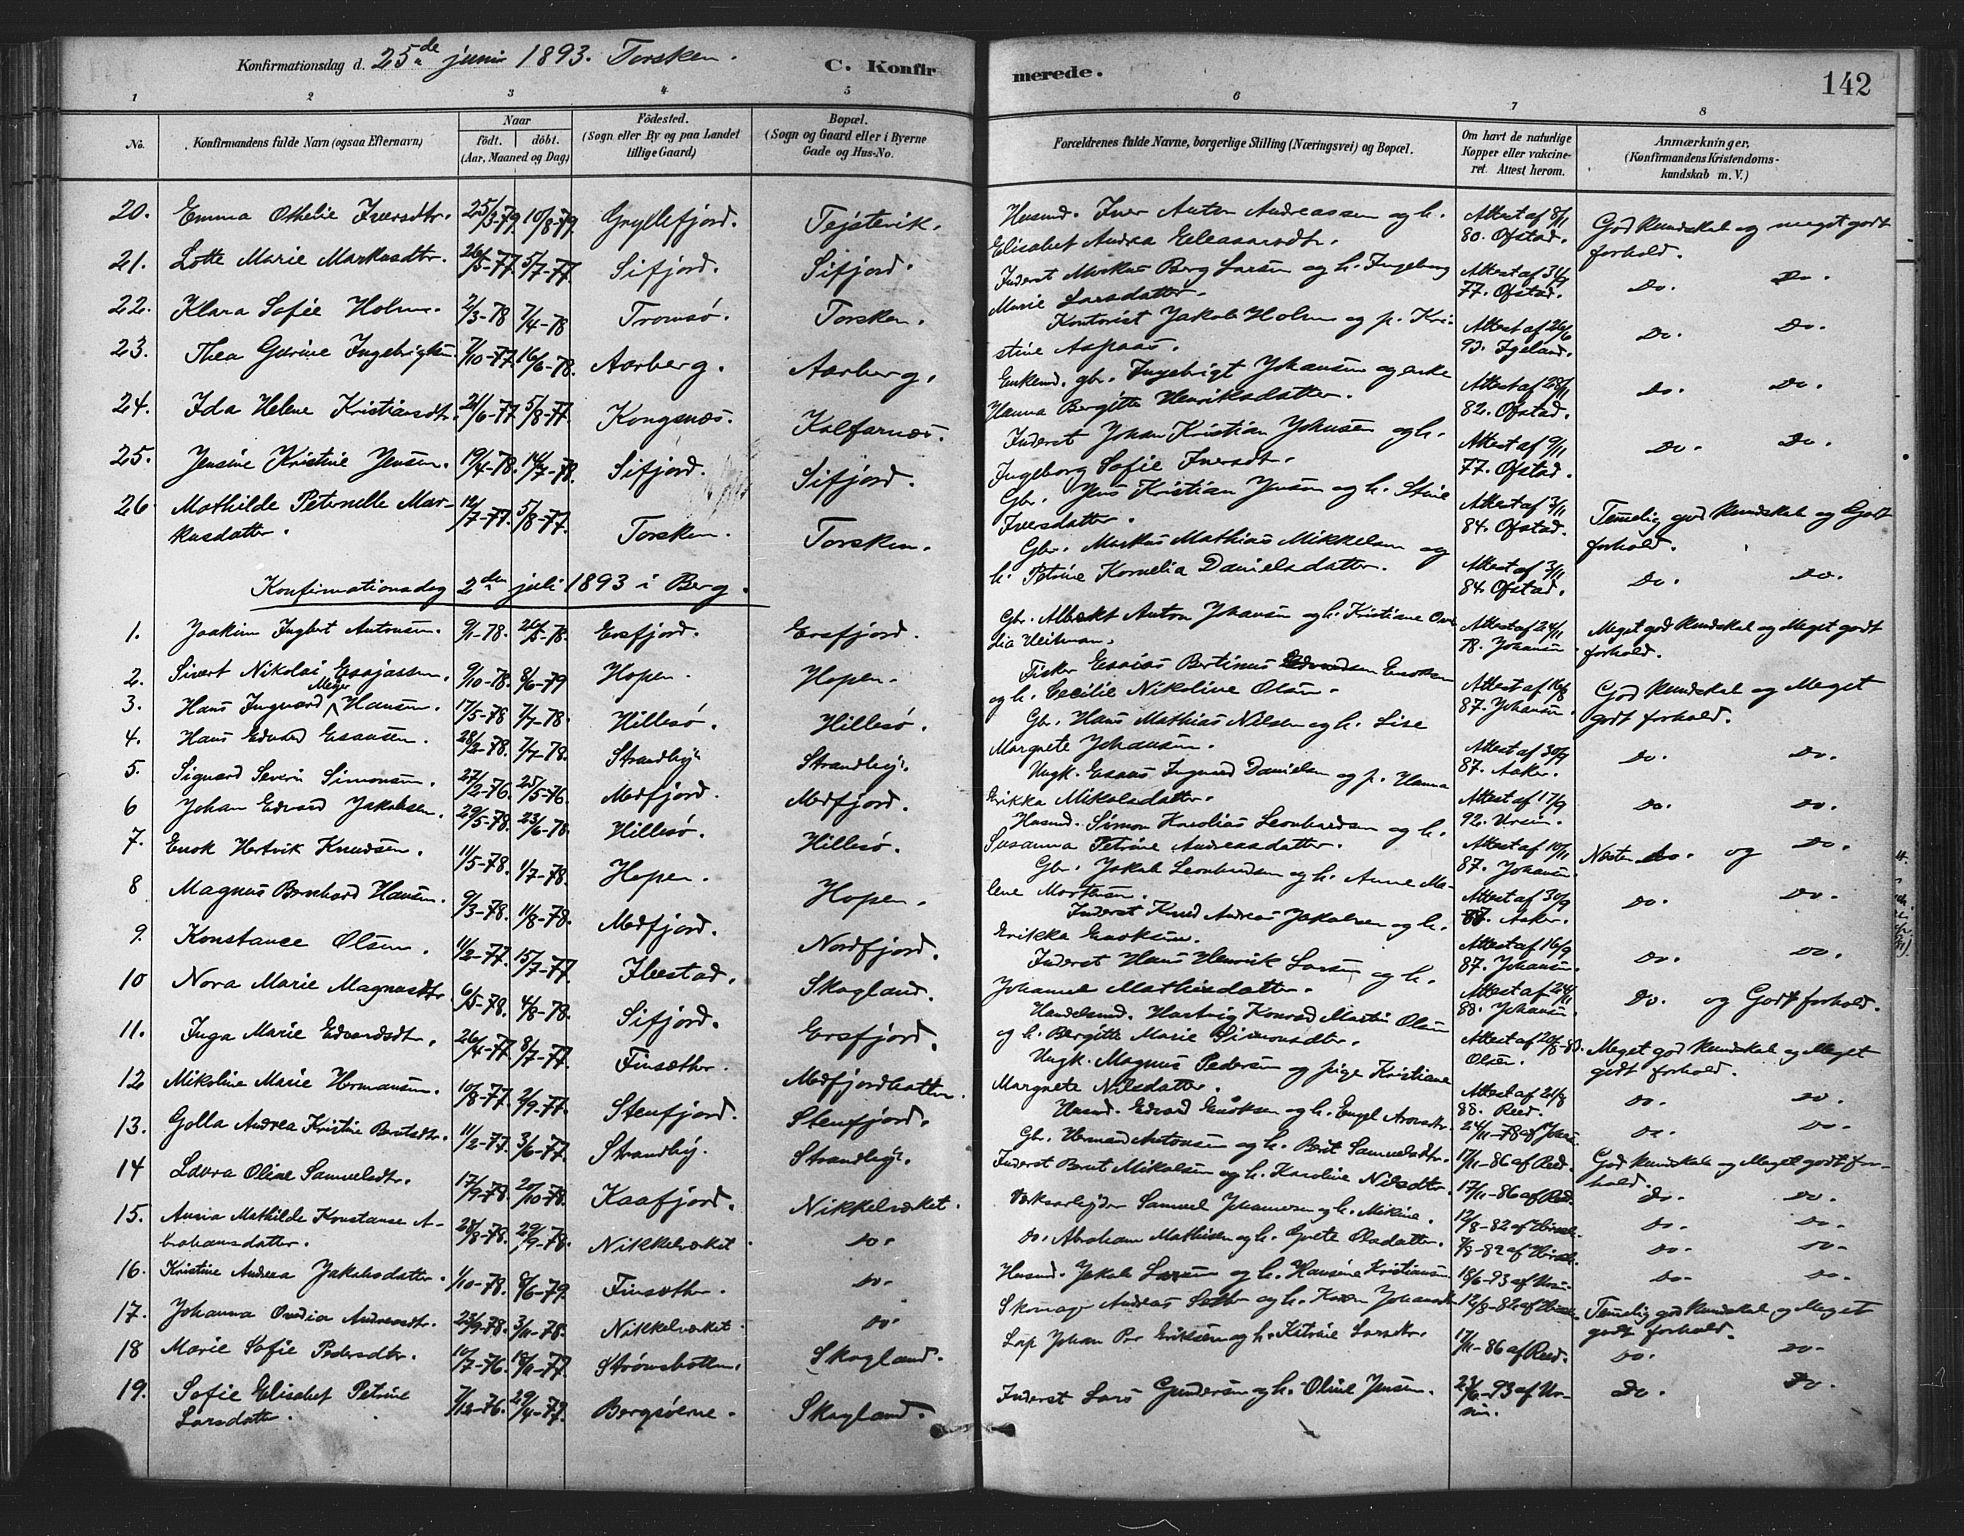 Konfirmationsdag d. 25de juni 1893. Torsken.
C. Konfirmerede.
142
1 2 3 4 5 6 7 8
No.
Konfirmandens fulde Navn (ogsaa Efternavn)
Naar
födt. döbt.
(Aar, Maaned og Dag)
Födested.
(Sogn eller By og paa Landet
tillige Gaard)
Bopæl.
(Sogn og Gaard eller i Byerne
Gade og Hus-No.
Forældrenes fulde Navne, borgerlige Stilling (Næringsvei) og Bopæl.
Om havt de naturlige
Kopper eller vakcine-
ret. Attest herom.
Anmærkninger.
(Konfirmandens Kristendoms-
kundskab m. V.)
20. Emma Othelie Iversdtr. 25/3-79. 10/8-79. Gryllefjord. Tejstevik. Husmd. Iver Anton Andreassen og h. Elisabet Andrea Eleasarsdtr. Attest af 8/11 80. Ofstad. God kundskab og meget godt forhold.
21. Lotte Marie Markusdtr. 26/5-77. 5/7-77. Sifjord. Sifjord. Inderst Markus Berg Larsen og h. Ingeborg Marie Larsdatter. 77. Ofstad. Do. Do.
22. Klara Sofie Holm. 2/3-78 7/4-78 Tromsø. Torsken. Kontorist Jakob Holm og p. Kristine Aspaas. Attest af 26/6 93. Do. Do.
23. Thea Gurine Ingebrigtsen. 7/10-77. 16/6-78. Aarberg. Aarberg. Enkemd. gbr. Ingebrigt Johansen og Hanna Bergitte Henriksdatter. Attest af 28/11 82. Ofstad. Do. Do.
24. Ida Helene Kristiansdtr. 21/6-77. 5/8-77. Kongsnæs. Kalfarnæs. Inderst Johan Kristian Johnsen og h. Ingeborg Sofie Iversdt. Attest af 9/11 77. Ofstad. Do. Do.
25. Jensine Kristine Jensen. 19/4-78. 14/7-78. Sifjord. Sifjord. Gbr. Jens Kristian Jensen og h. Stine Iversdatter. Attest af 3/11 84. Ofstad. Temelig god kundskab og Godt forhold.
26. Mathilde Peternelle Mar-
kusdatter. 12/7-77. 5/8-77. Torsken. Torsken. Gbr. Markus Mathias Mikkelsen og h. Petrine Kornelia Danielsdatter. Attest af 3/11 84. Ofstad. Do. Do.
Konfirmationsdag 2den juli 1893 i Berg.
1. Joakim Ingbert Antonsen. 9/1-78. 26/5-78. Ersfjord. Ersfjord. Gbr. Albrekt Anton Johansen og h. Kristiane Heitman. Attest af 24/11 78. Johansen. Meget god kundskab og Meget godt forhold.
2. Sivert Nikolai Essajassen. 9/10-78. 8/6-79 Hopen. Hopen. Fisker Essaias Bertinus Enoksen og h. Cecilie Nikoline Olsen. Attest af 16/8 87. Johansen. God kundskab og Meget godt forhold.
3. Hans Ingvard Meyer Hansen. 17/5-78 7/7-78. Hillesø. Hillesø. Gbr. Hans Mathias Nilsen og h. Lise Margrete Johansen. Attest af 30/9 87. Aaker. Do. Do.
4. Hans Edvard Esausen. 28/2-78. 7/7-78. Strandby. Strandby. Ungk. Esaus Ingvard Danielsen og p. Hanna Erikka Mikalsdatter. Attest af 17/9 92. Ursin. Do. Do.
5. Sigvard Severin Simonsen. 27/2-76. 25/5-76. Mefjord. Mefjord. Husmd. Simon Karolius Leonhardsen og h. Susanna Petrine Andreasdatter. Attest af 10/11 87. Johansen. Næsten do. og Do.
6 Johan Edvard Jakobsen. 29/5-78. 23/6-78. Hillesø. Hillesø. Gbr. Jakob Leonhardsen og h. Anne Malene Mortensen. Attest af 30/9 87. Aaker. Do. Do.
7. Enok Hertvik Knudsen. 11/5-78. 1/7-78. Hopen. Hopen. Inderst Knud Andreas Jakobsen og h. Erikka Enoksen. Attest af 16/9 87. Johansen. Do. Do.
8 Magnus Bernhard Hansen. 9/3-78. 11/8-78. Mefjord. Nordfjord. Inderst Hans Henrik Larsen og h. Johanne Mathisdatter. Attest af 24/11 88. Johansen. Do. og Godt forhold.
9. Konstance Olsen. 11/2-77. 15/7-77. Ibestad. Skogland. Handelsmd. Hartvig Konrad Martin Olsen og h. Bergitte Marie Simonsdtr. Attest af 20/8-83. Olsen. Meget god kundskab og Meget godt forhold.
10 Nora Marie Magnusdtr. 6/5-78. 4/8-78. Sifjord. Ersfjord. Ungk. Magnus Pedersen og pige Kristiane Margrete Nilsdatter. Attest af 21/8 88. Reed. Do. Do.
11. Inga Marie Edvardsdtr. 26/4-77 8/7-77. Finsæther. Mefjordbotten. Husmd. Edvard Enoksen og h. Engel Aronsdtr. 24/11-78 af Do. Do.
12 Nikoline Marie Hermansen. 10/8-77. 2/9-77. Stenfjord. Stenfjord. Gbr. Herman Antonsen og h. Brit Samuelsdtr. 17/11-86 af Reed. God kundskab og Meget godt for-
hold.
13. Golla Andrea Kristine Berntsdtr. 11/2-77. 3/6-77. Strandby. Strandby. Inderst Bernt Mikalsen og h. Karoline Nilsdtr. 17/11-86 af Reed. Do. Do.
14 Laura Oline Samuelsdtr. 17/9-78. 20/10-78. Kaafjord. Nikkelverket. Samuel Johannesen og h. Mikine. 12/8-82 af Do. Do.
15. Anna Mathilde Konstanse A-
brahamsdatter. 28/8-78. 29/9-78. Nikkelverket Do. Do. Abraham Mathisen og h. Grete Olsdatter. 7/8-82 af Do. Do.
16. Kristine Andrea Jakobsdatter. 1/10-78. 8/6-79. Finsæther. Do. Husmd. Jakob Larsen og h. Hansine Kristiansen 18/6-93 af Ursin Do. Do.
17. Johanna Ovedia Andreasdtr. 22/9-78. 3/11-78. Nikkelverket. Do. Skomager Andreas og h. Karen Johansdtr 12/8-82 af Temelig god kundskab og Meget godt forhold.
18 Marie Sofie Pedersdtr. 10/7-76. 18/11-77. Strømsbotten. Skogland. Lap Johan Per Eriksen og h. Katrine Larsdtr. 17/11-86 af Reed. Do. Do.
19. Sofie Elisabet Petrine
Larsdatter. 7/12-76. 29/4-77. Bergsøerne. Skogland. Inderst Lars Gundersen og h. Oline Jensen. 23/6-93 af Ur-
sin. Do. Do.